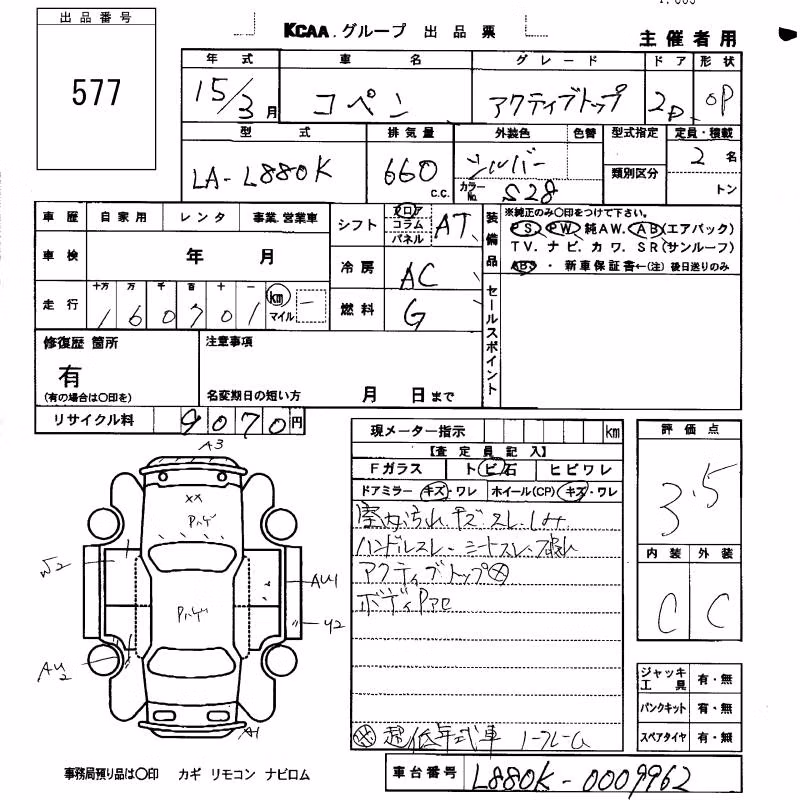 出品番号
577
KCAA.グループ 出品票
主催者用
年式 車名 グレード ドア 形状
15/3月 コペン アクティブトップ 2D OP
型式 排気量 外装色 色替 型式指定 定員・積載
LA-L880K 660 c.c. シルバー 類別区分 2名
カラーNo. S28 トン
車歴 自家用 レンタ 事業.営業車
シフト フロア コラム パネル AT
装備品
※純正のみ〇印をつけて下さい。
PS. PW. 純AW. AB(エアバック)
TV. ナビ. カワ. SR(サンルーフ)
ABS・新車保証書←(注)後日送りのみ
車検 年 月
冷房 AC
走行 十万 万 千 百 十 一
160701 km マイル
燃料 G
セールスポイント
修復歴 箇所
有
(有の場合は〇印を)
注意事項
名変期日の短い方 月 日まで
リサイクル料 9070円
現メーター指示 km
【査定員記入】
Fガラス トビ石 ヒビワレ
ドアミラー キズ・ワレ ホイール(CP) キズ・ワレ
室内汚れ キズ スレ しみ
ハンドルスレ シートスレ・破れ
アクティブトップ
ボディ
超低年式車
評価点
3.5
内装 外装
C C
ジャッキ工具 有・無
パンクキット 有・無
スペアタイヤ 有・無
A3
XX
W2
AU1
Y2
AU2
A1
事務局預り品は〇印 カギ リモコン ナビロム
車台番号 L880K-0009962